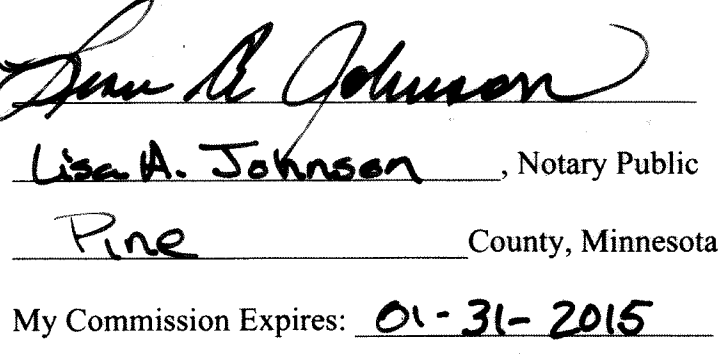 Lisa A. Johnson
Lisa A. Johnson, Notary Public
Pine County, Minnesota
My Commission Expires: 01-31-2015